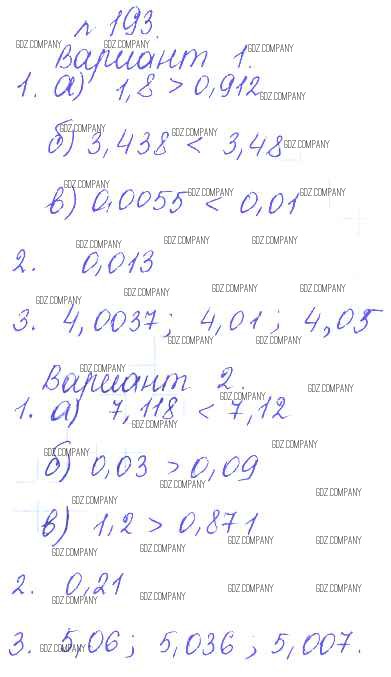 № 193.
GDZ.COMPANY GDZ.COMPANY
Вариант 1. GDZ.COMPANY
1. а) 1,8 > 0,912 GDZ.COMPANY
GDZ.COMPANY GDZ.COMPANY
б) 3,438 < 3,48 GDZ.COMPANY
GDZ.COMPANY GDZ.COMPANY GDZ.COMPANY
в) 0,0055 < 0,01
GDZ.COMPANY GDZ.COMPANY GDZ.COMPANY
2. 0,013
GDZ.COMPANY GDZ.COMPANY GDZ.COMPANY
GDZ.COMPANY
3. 4,0037; 4,01; 4,05
GDZ.COMPANY GDZ.COMPANY
GDZ.COMPANY
Вариант 2. GDZ.COMPANY
GDZ.COMPANY
1. а) 7,118 < 7,12
GDZ.COMPANY
GDZ.COMPANY GDZ.COMPANY
б) 0,03 > 0,09
GDZ.COMPANY
GDZ.COMPANY GDZ.COMPANY
в) 1,2 > 0,871
GDZ.COMPANY GDZ.COMPANY
GDZ.COMPANY GDZ.COMPANY
2. 0,21
GDZ.COMPANY GDZ.COMPANY
GDZ.COMPANY GDZ.COMPANY
3. 5,06; 5,036; 5,007.
GDZ.COMPANY GDZ.COMPANY GDZ.COMPANY GDZ.COMPANY